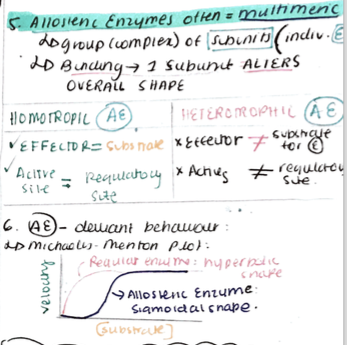 5. Allosteric Enzymes often = multimeric
↳ group (complex) of subunits (indiv. E
↳ Binding → 1 subunit ALTERS
OVERALL SHAPE
HOMOTROPIC (AE)
✓ EFFECTOR = substrate
✓ Active site = Regulatory site
HETEROTROPHIC (AE)
x Effector ≠ substrate for (E)
x Active ≠ regulatory site.
6. (AE) - deviant behaviour:
↳ Michaelis-Menton Plot:
Regular enzyme: hyperbolic shape
velocity
→ Allosteric Enzyme:
Sigmoidal shape.
[substrate]